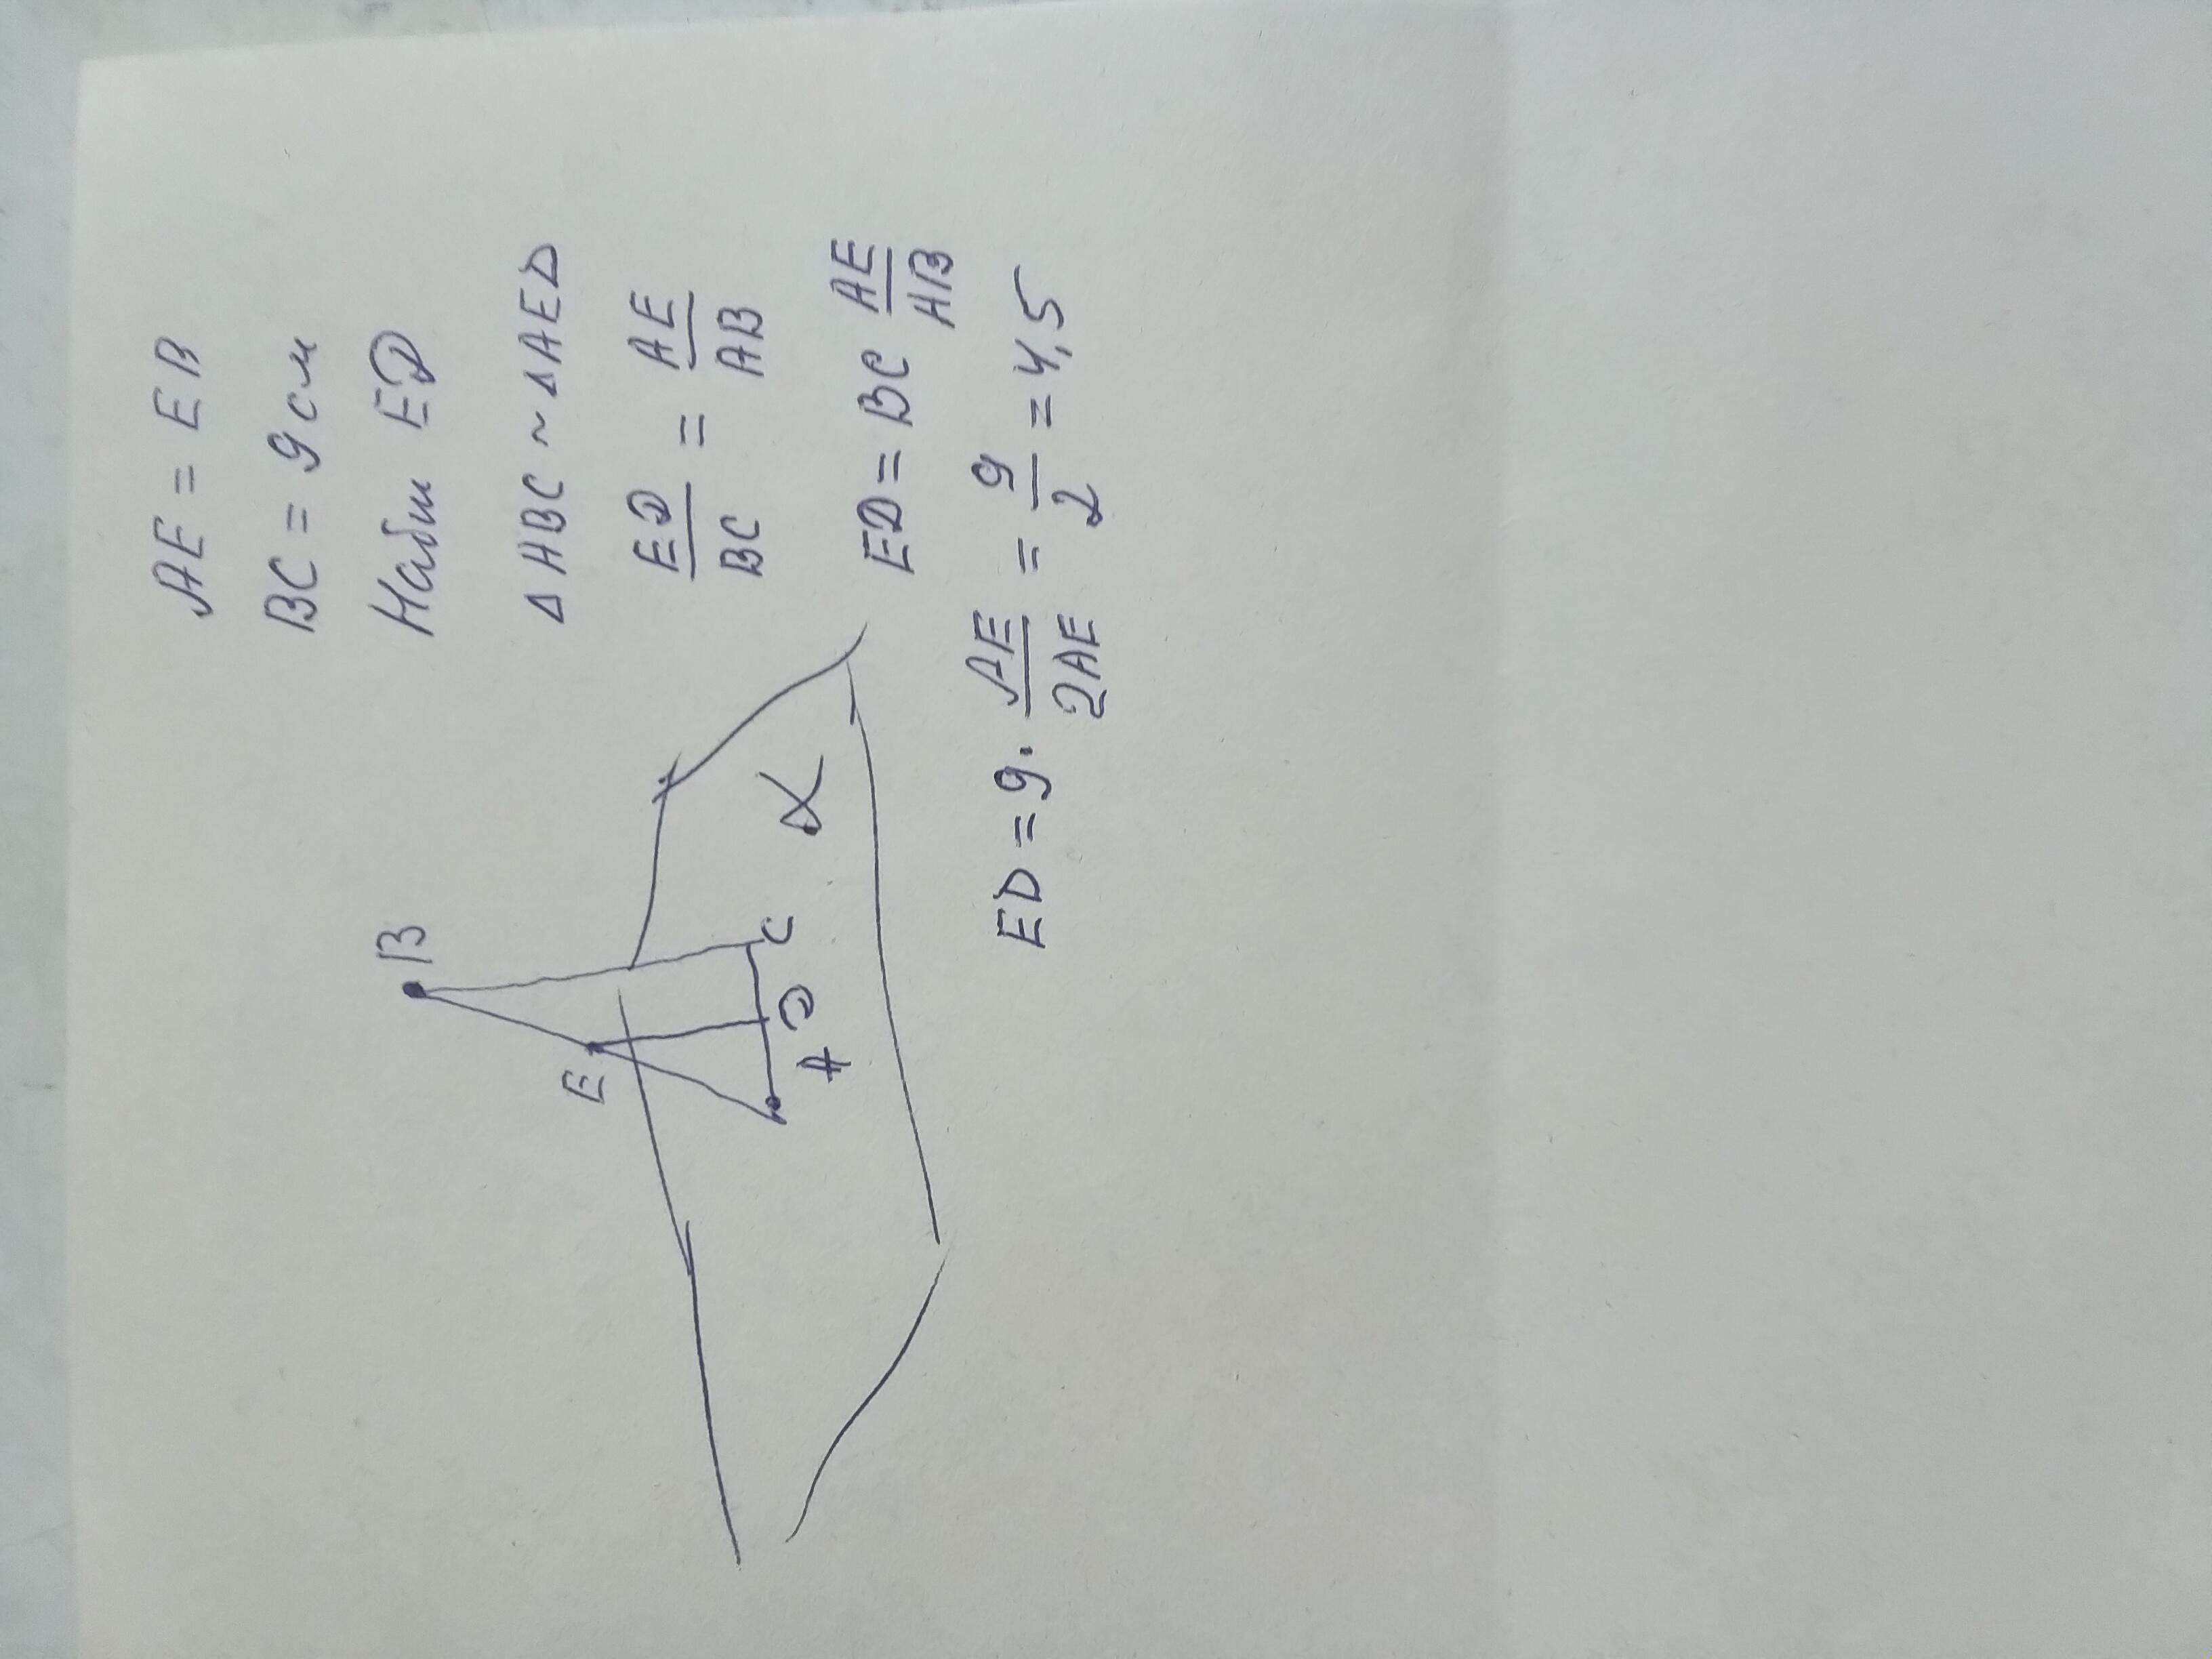 AE = EB
BC = 9 см
Найти ED
Δ ABC ~ Δ AED
ED/BC = AE/AB
ED = BC AE/AB
ED = 9 · AE/2AE = 9/2 = 4,5
B
E
C
D
A
α